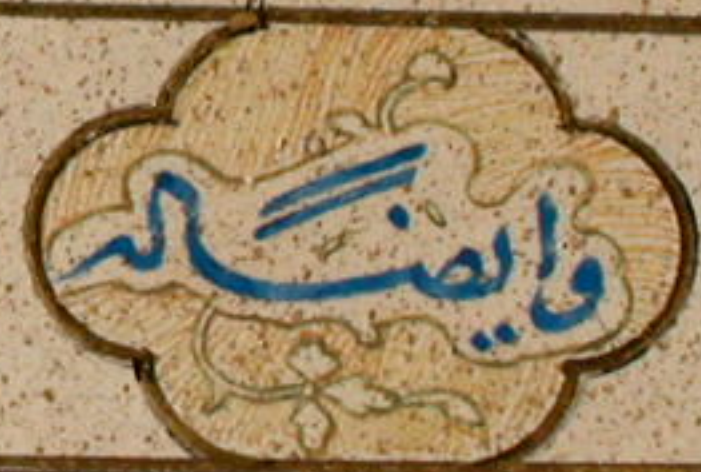 وایضاً له